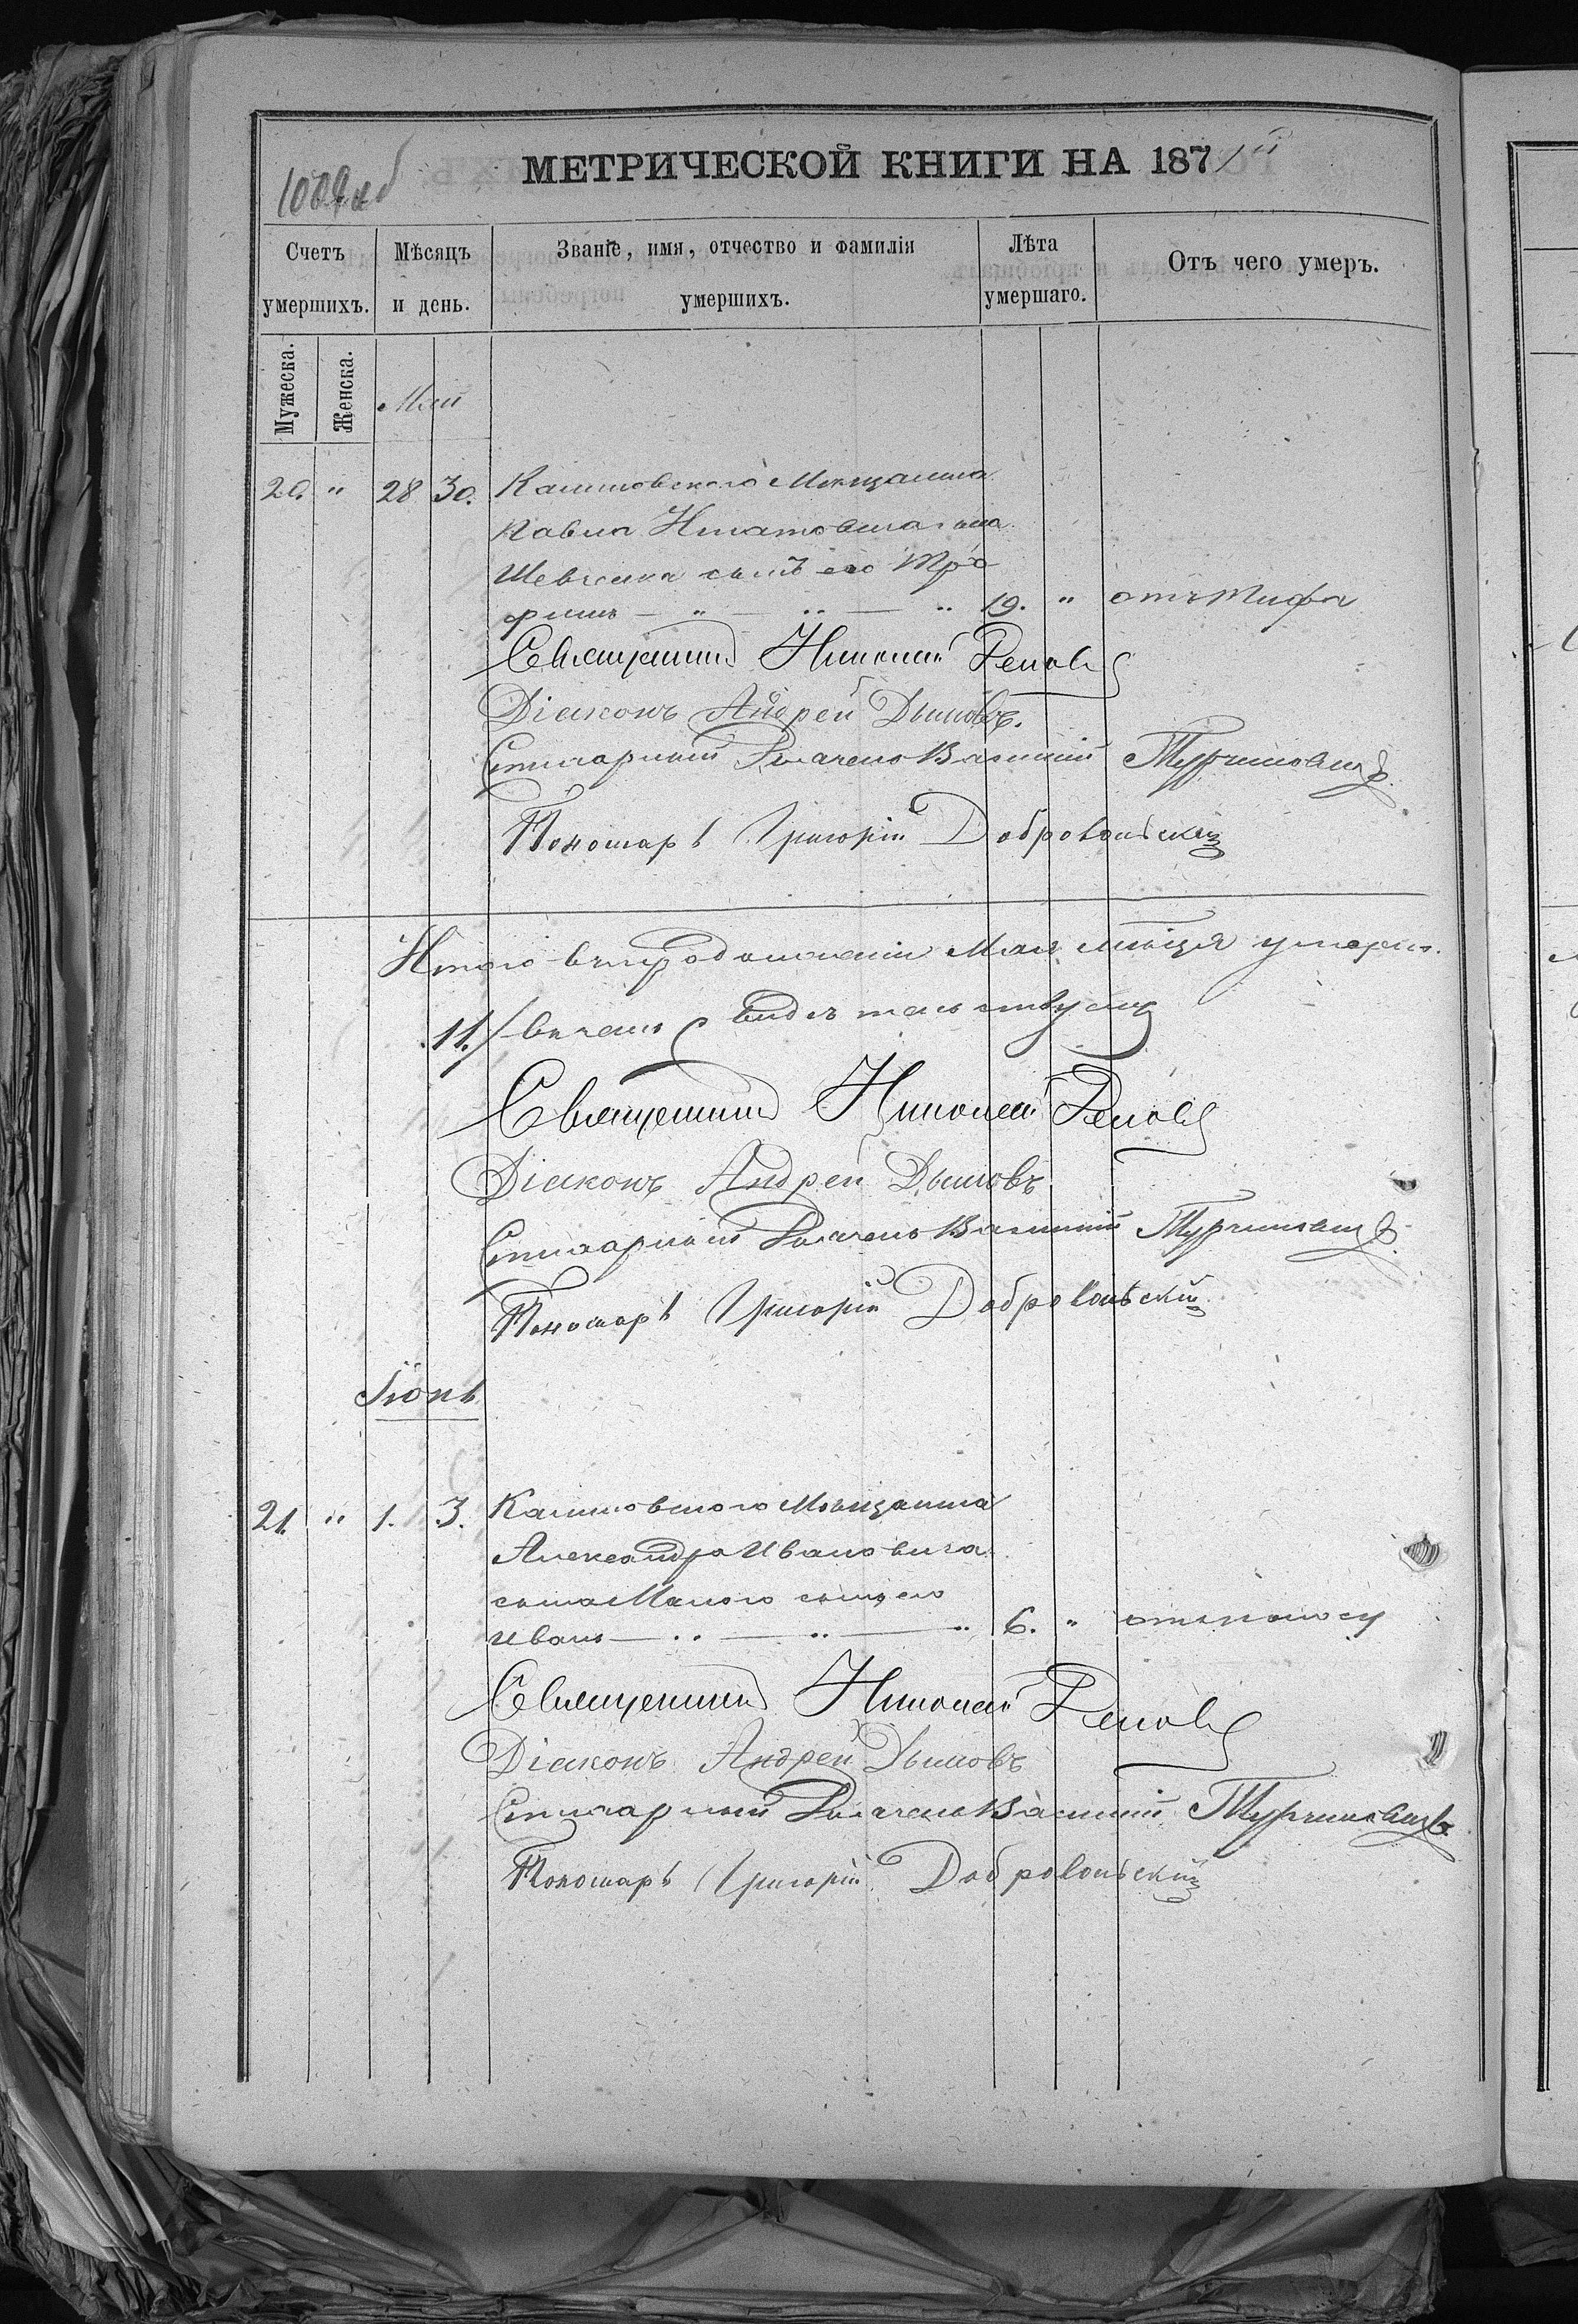 1009 об
МЕТРИЧЕСКОЙ КНИГИ НА 1871й
Счетъ умершихъ.
Мѣсяцъ и день.
Званіе, имя, отчество и фамилія умершихъ.
Лѣта умершаго.
Отъ чего умеръ.
Мужеска.
Женска.
Май
20. " 28 30. Калиновскаго Мѣщанина
Павла Игнатовича сына
Шевченка сынъ его Тро
фимъ — " — " — " 19. " отъ тифа
Священникъ Николай
Діаконъ Андрей Дымовъ.
Стихарный Василий Турчиновичъ
Пономарь Григорій Добровольскій
Итого въ продолженіи Мая мѣсяця умерло
11./ въ чемъ свидѣтельствуемъ
Священникъ Николай
Діаконъ Андрей Дымовъ
Стихарный Василий Турчиновичъ
Пономарь Григорій Добровольскій
Іюнь
21. " 1. 3. Калиновскаго Мѣщанина
Александра Ивановича
сына Малого сынъ его
Иванъ — " — " — " 6. " отъ поносу
Священникъ Николай
Діаконъ Андрей Дымовъ
Стихарный Василий Турчиновичъ
Пономарь Григорій Добровольскій